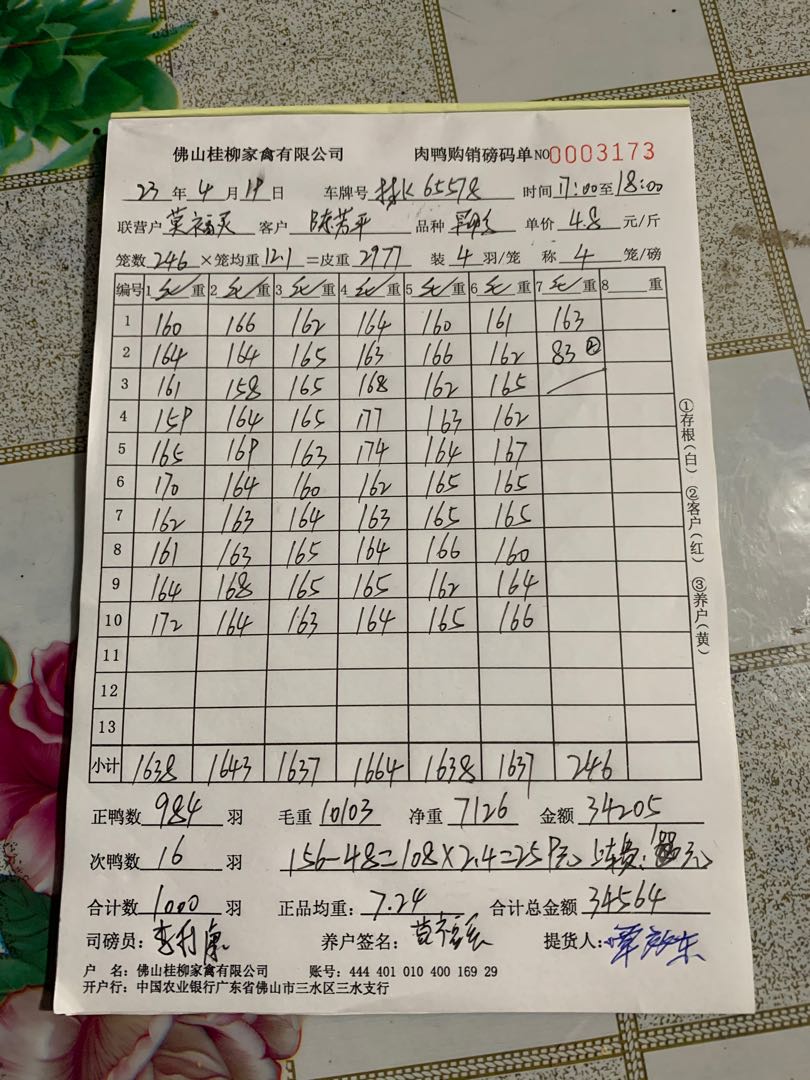 佛山桂柳家禽有限公司 肉鸭购销磅码单 NO 0003173
23 年 4 月 19 日 车牌号 桂K65578 时间 17:00 至 18:00
联营户 莫福灵 客户 陆芳平 品种 单价 4.8 元/斤
笼数 246 ×笼均重 12.1 =皮重 2977 装 4 羽/笼 称 4 笼/磅
编号 1 毛 重 2 毛 重 3 毛 重 4 毛 重 5 毛 重 6 毛 重 7 毛 重 8 重
1 160 166 162 164 160 161 163
2 164 164 165 163 166 162 83 ②
3 161 158 165 168 162 165
4 159 164 165 177 163 162
5 165 169 163 174 164 167
6 170 164 160 162 165 165
7 162 163 164 163 165 165
8 161 163 165 164 166 160
9 164 168 165 165 162 164
10 172 164 163 164 165 166
11
12
13
小计 1638 1643 1637 1664 1638 1637 246
正鸭数 984 羽 毛重 10103 净重 7126 金额 34205
次鸭数 16 羽 156-48=108×2.4=259元 上车费: 元
合计数 1000 羽 正品均重: 7.24 合计总金额 34564
司磅员: 李 康 养户签名: 提货人:
户 名: 佛山桂柳家禽有限公司 账号: 444 401 010 400 169 29
开户行: 中国农业银行广东省佛山市三水区三水支行
①存根(白) ②客户(红) ③养户(黄)